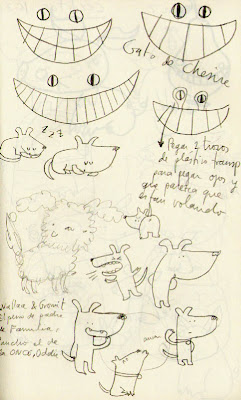 Gato de Chesire
zzz
Pegar 2 trozos
de plástico transp
para pegar ojos y
que parezca que
están volando
Wallace & Gromit
El perro de padre
de Familia,
el de
la ONCE, Oddie